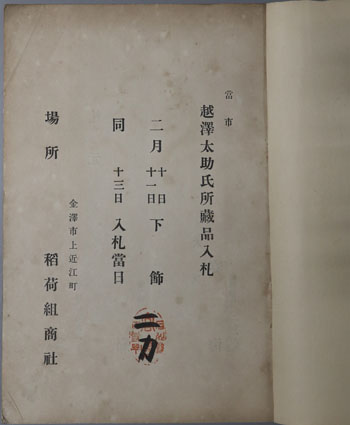 當市
越澤太助氏所藏品入札
二月十日十一日下飾
同十三日入札當日
場所
金澤市上近江町
稻荷組商社
二カ